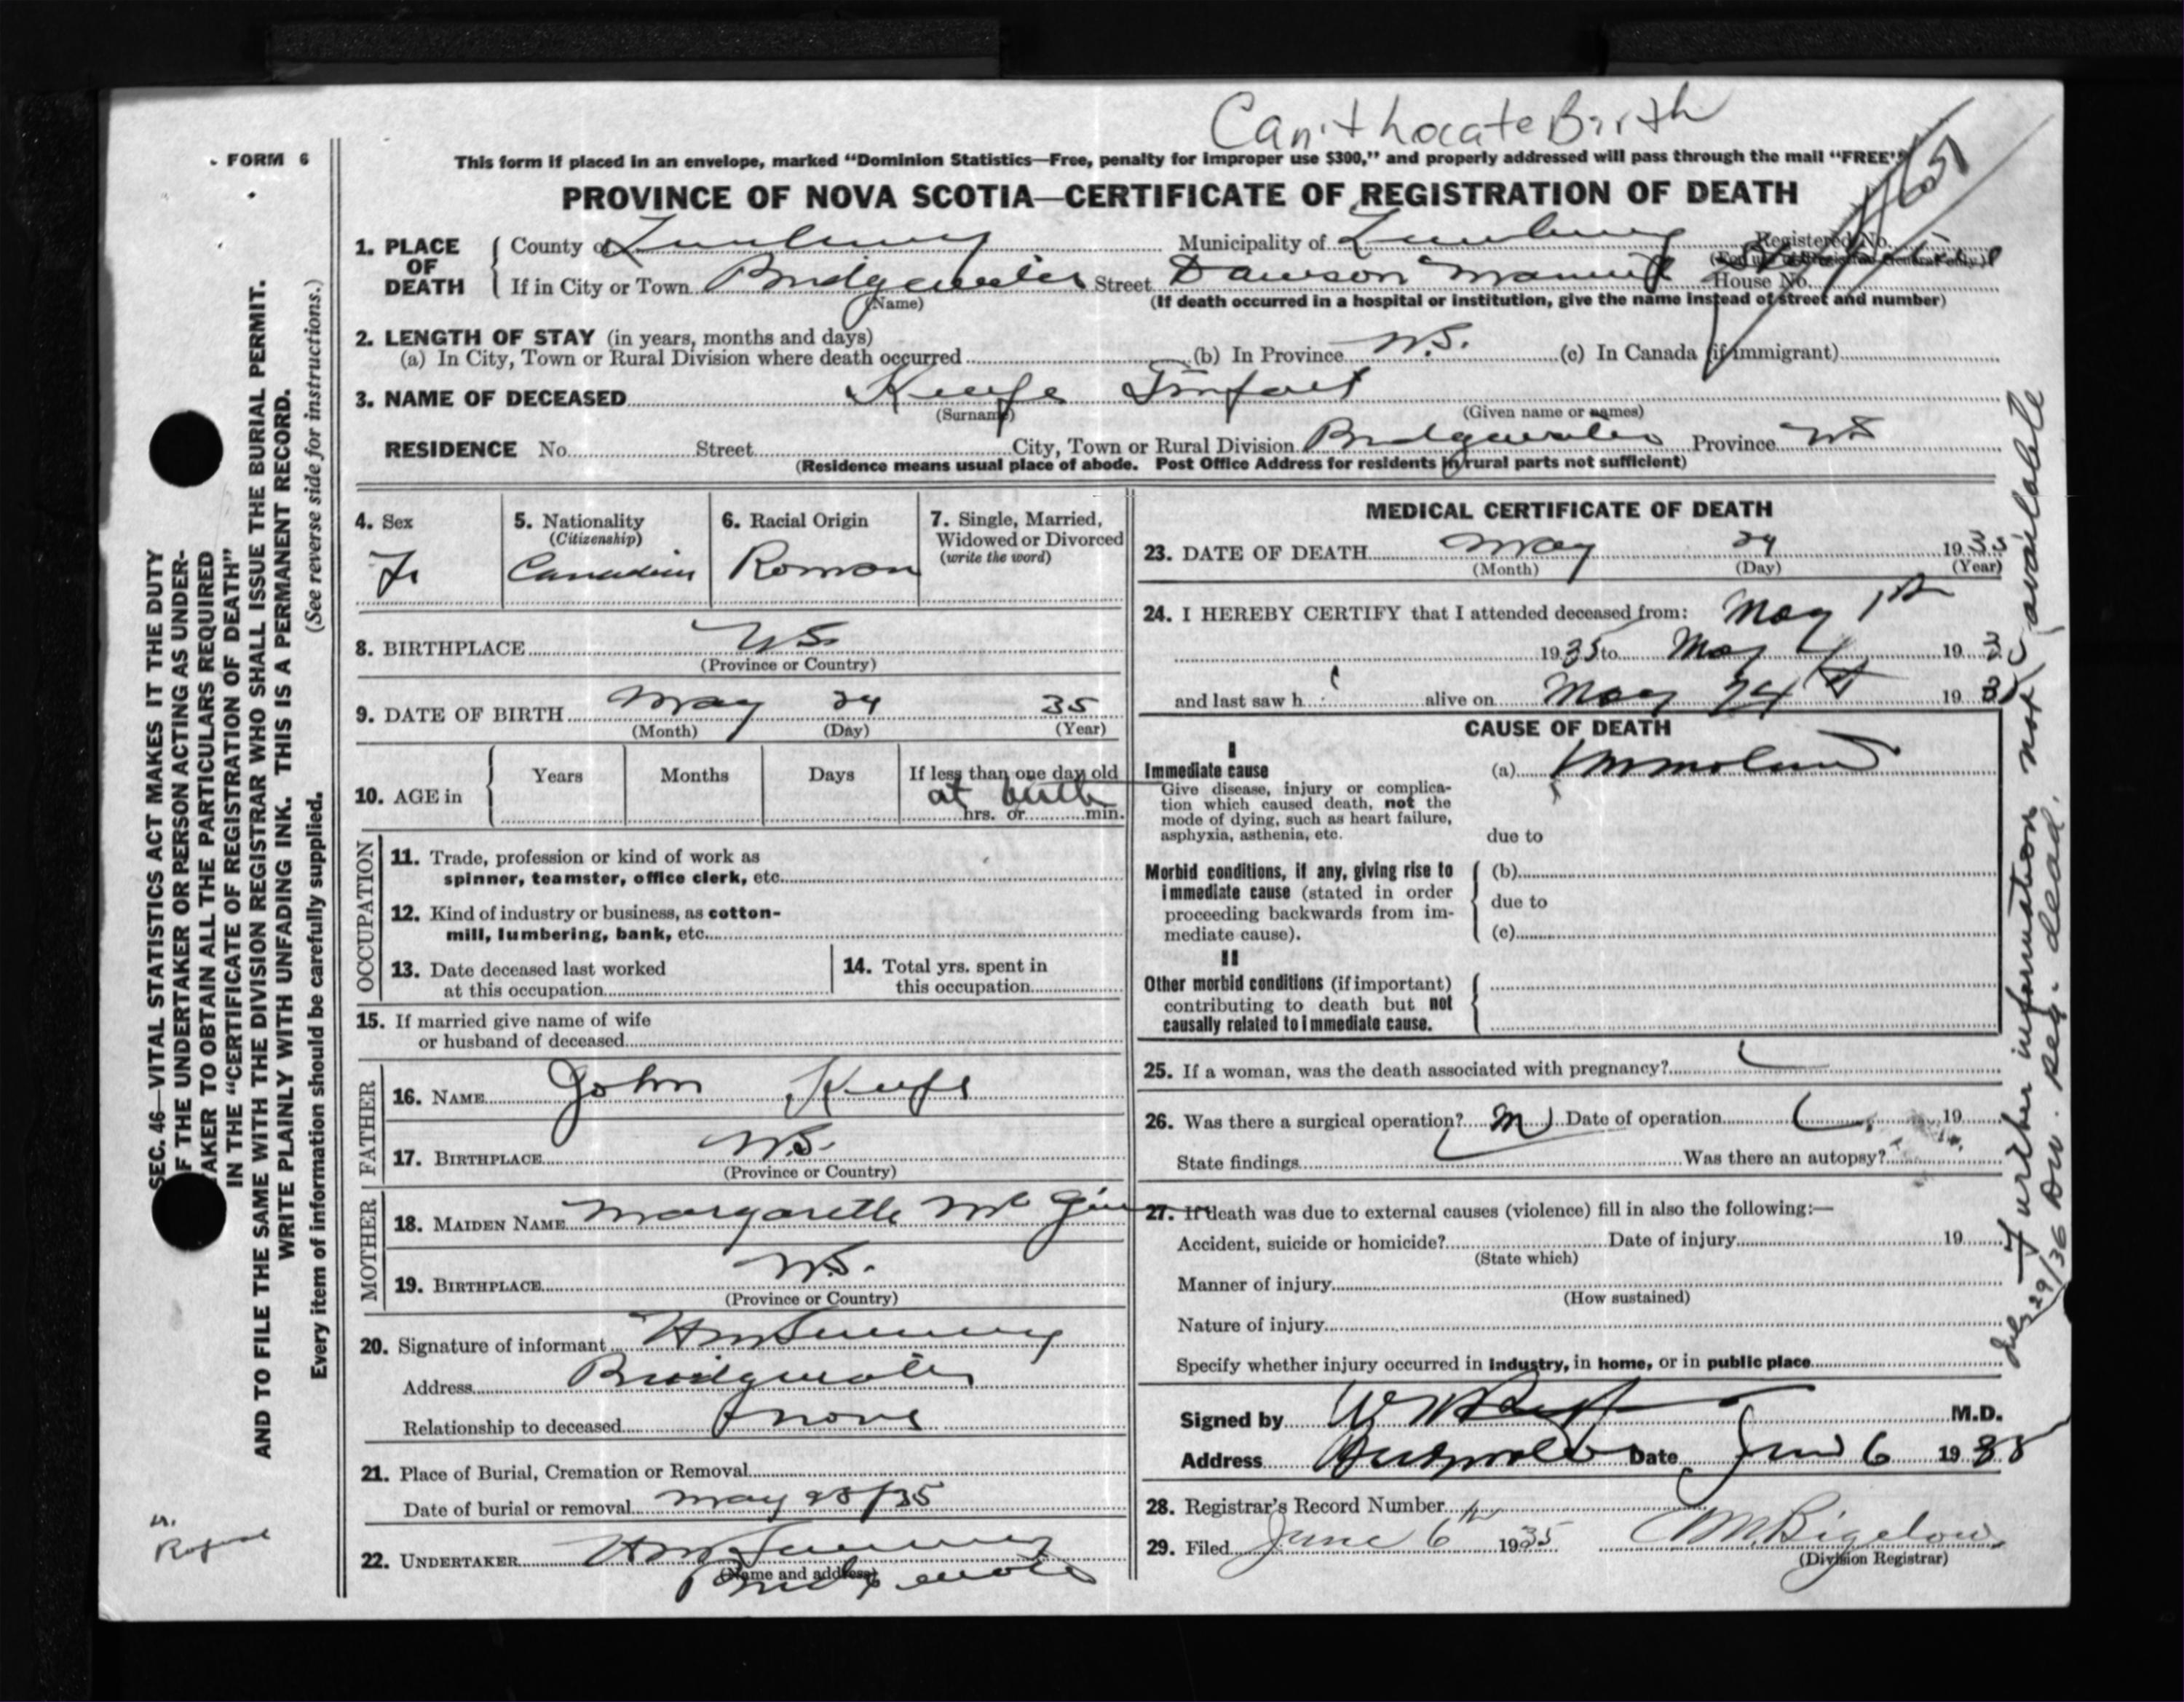 Can't Locate Birth
FORM 6
This form if placed in an envelope, marked "Dominion Statistics—Free, penalty for improper use $300," and properly addressed will pass through the mail "FREE"
PROVINCE OF NOVA SCOTIA—CERTIFICATE OF REGISTRATION OF DEATH
1. PLACE OF DEATH
County of Lunenburg Municipality of Lunenburg Registered No.
(For use of Registrar General only)
If in City or Town Bridgewater Street Dawson House No.
(Name) (If death occurred in a hospital or institution, give the name instead of street and number)
2. LENGTH OF STAY (in years, months and days)
(a) In City, Town or Rural Division where death occurred (b) In Province N.S. (c) In Canada (if immigrant)
3. NAME OF DECEASED
(Surname) (Given name or names)
RESIDENCE No. Street City, Town or Rural Division Bridgewater Province NS
(Residence means usual place of abode. Post Office Address for residents in rural parts not sufficient)
4. Sex
5. Nationality
(Citizenship)
Canadian
6. Racial Origin
Roman
7. Single, Married,
Widowed or Divorced
(write the word)
8. BIRTHPLACE NS
(Province or Country)
9. DATE OF BIRTH May 24 35
(Month) (Day) (Year)
10. AGE in Years Months Days If less than one day old
at birth
hrs. or min.
OCCUPATION
11. Trade, profession or kind of work as
spinner, teamster, office clerk, etc.
12. Kind of industry or business, as cotton-
mill, lumbering, bank, etc.
13. Date deceased last worked
at this occupation
14. Total yrs. spent in
this occupation
15. If married give name of wife
or husband of deceased
FATHER
16. NAME John
17. BIRTHPLACE N.S.
(Province or Country)
MOTHER
18. MAIDEN NAME Margarette
19. BIRTHPLACE N.S.
(Province or Country)
20. Signature of informant
Address Bridgewater
Relationship to deceased none
21. Place of Burial, Cremation or Removal
Date of burial or removal May 25/35
22. UNDERTAKER
(Name and address)
Bridgewater
MEDICAL CERTIFICATE OF DEATH
23. DATE OF DEATH May 24 1935
(Month) (Day) (Year)
24. I HEREBY CERTIFY that I attended deceased from: May 1st
1935 to May 193
and last saw h alive on May 24th 1935
CAUSE OF DEATH
I
Immediate cause
Give disease, injury or complica-
tion which caused death, not the
mode of dying, such as heart failure,
asphyxia, asthenia, etc.
(a)
due to
Morbid conditions, if any, giving rise to
immediate cause (stated in order
proceeding backwards from im-
mediate cause).
(b)
due to
(c)
II
Other morbid conditions (if important)
contributing to death but not
causally related to immediate cause.
25. If a woman, was the death associated with pregnancy?
26. Was there a surgical operation? Date of operation 19
State findings Was there an autopsy?
27. If death was due to external causes (violence) fill in also the following:—
Accident, suicide or homicide? Date of injury 19
(State which)
Manner of injury
(How sustained)
Nature of injury
Specify whether injury occurred in industry, in home, or in public place
Signed by M.D.
Address Date June 6 193
28. Registrar's Record Number
29. Filed June 6th 1935 Bigelow
(Division Registrar)
SEC. 46—VITAL STATISTICS ACT MAKES IT THE DUTY
OF THE UNDERTAKER OR PERSON ACTING AS UNDER-
TAKER TO OBTAIN ALL THE PARTICULARS REQUIRED
IN THE "CERTIFICATE OF REGISTRATION OF DEATH"
AND TO FILE THE SAME WITH THE DIVISION REGISTRAR WHO SHALL ISSUE THE BURIAL PERMIT.
WRITE PLAINLY WITH UNFADING INK. THIS IS A PERMANENT RECORD.
Every item of information should be carefully supplied. (See reverse side for instructions.)
Further information not available
July 29/36 Div. Reg. dead.